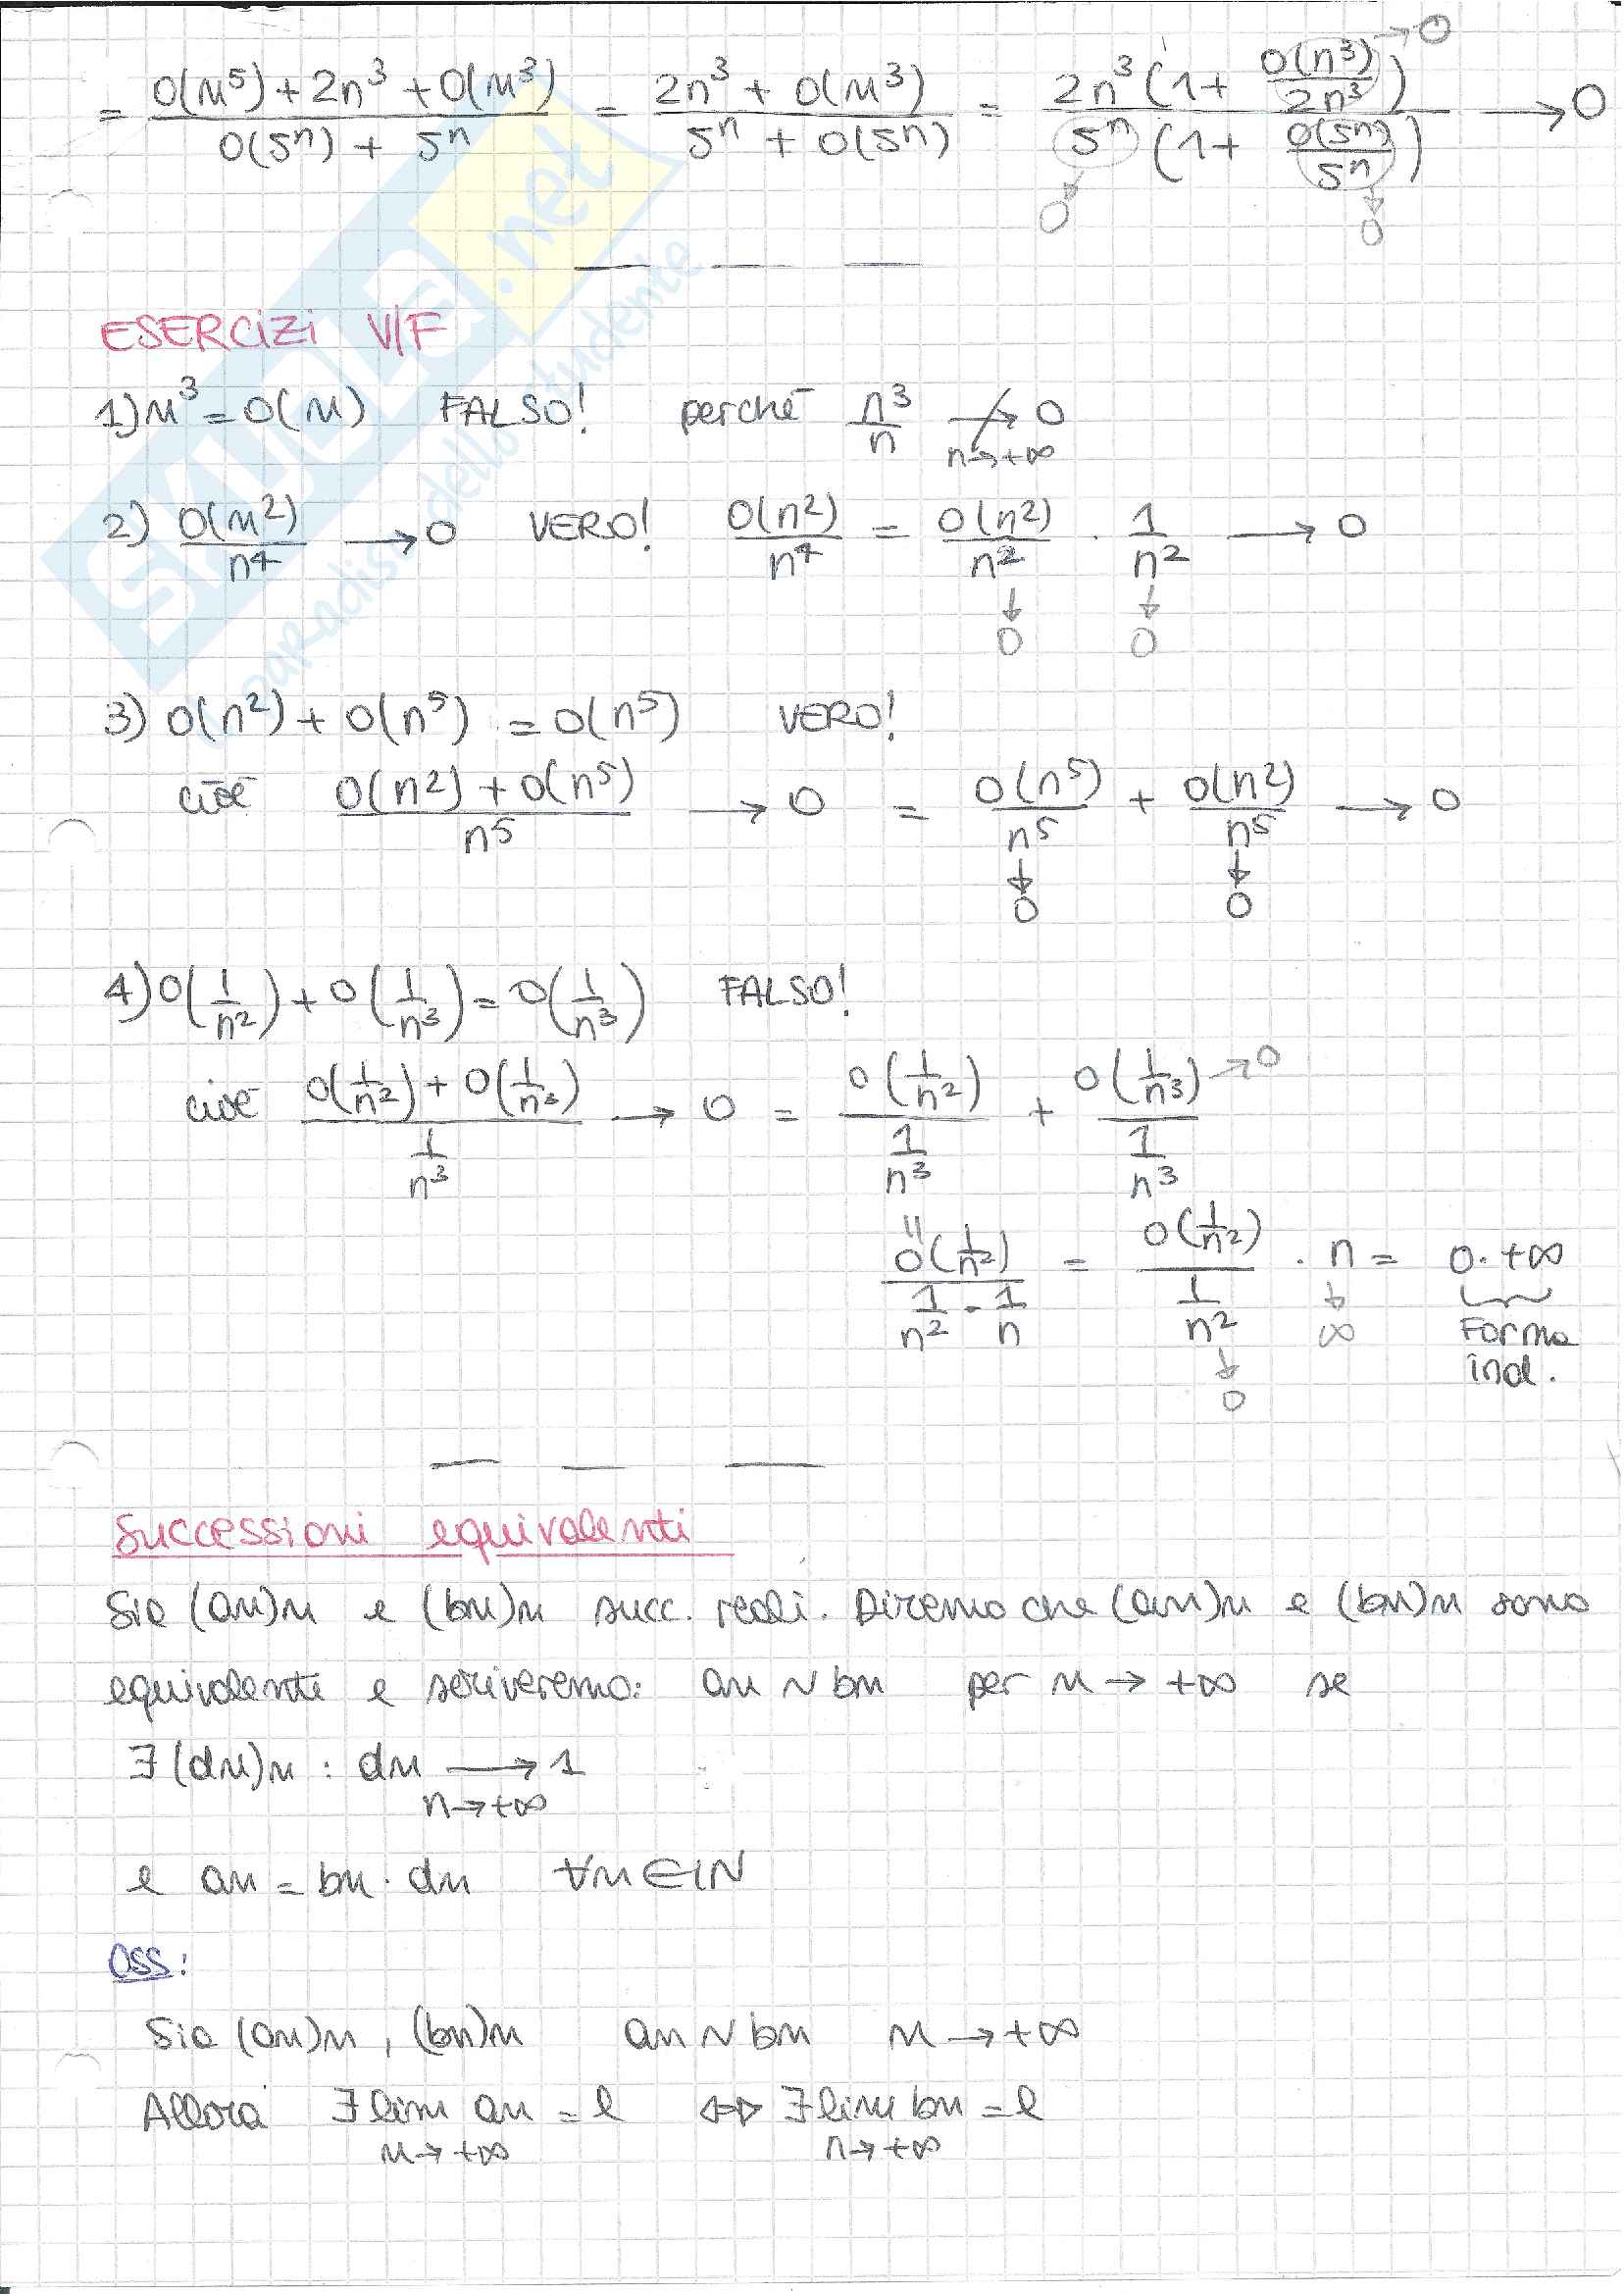 = (o(n⁵) + 2n³ + o(n³)) / (o(5ⁿ) + 5ⁿ) = (2n³ + o(n³)) / (5ⁿ + o(5ⁿ)) = 2n³ (1 + o(n³)/2n³) / 5ⁿ (1 + o(5ⁿ)/5ⁿ) → 0
→ 0
↓ 0 ↓ 0
ESERCIZI V/F
1) n³ = o(n) FALSO! perché n³/n ↛ 0
n→+∞
2) o(n²)/n⁴ → 0 VERO! o(n²)/n⁴ = o(n²)/n² · 1/n² → 0
↓ 0 ↓ 0
3) o(n²) + o(n⁵) = o(n⁵) VERO!
cioè (o(n²) + o(n⁵))/n⁵ → 0 = o(n⁵)/n⁵ + o(n²)/n⁵ → 0
↓ 0 ↓ 0
4) o(1/n²) + o(1/n³) = o(1/n³) FALSO!
cioè (o(1/n²) + o(1/n³)) / (1/n³) → 0 = o(1/n²) / (1/n³) + o(1/n³) / (1/n³) → 0
=
o(1/n²) / (1/n² · 1/n) = o(1/n²) / (1/n²) · n = 0 · +∞
↓ 0 ↓ ∞ Forma
ind.
Successioni equivalenti
Sia (an)n e (bn)n succ. reali. Diremo che (an)n e (bn)n sono
equivalenti e scriveremo: an ~ bn per n → +∞ se
∃ (dn)n : dn → 1
n→+∞
e an = bn · dn ∀n∈ℕ
OSS:
Sia (an)n, (bn)n an ~ bn n → +∞
Allora ∃ lim an = l ⇔ ∃ lim bn = l
n→+∞ n→+∞
SKUOLA.net
paradiso dello studente